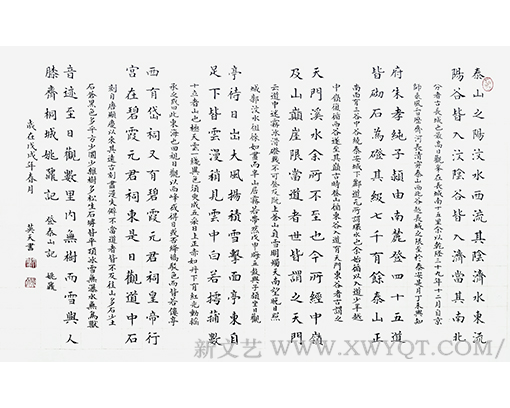 泰山之陽汶水西流其陰濟水東流
陽谷皆入汶陰谷皆入濟當其南北
分者古長城也最高日觀峰在長城南十五里余以乾隆三十九年十二月自京
師乘風雪歷齊河長清穿泰山西北谷越長城之限至於泰安是月丁未與知
府朱孝純子潁由南麓登四十五道
皆砌石為磴其級七千有餘泰山正
南面有三谷中谷繞泰安城下酈道元所謂環水也余始循以入道少半越
中嶺復循西谷遂至其巔古時登山循東谷入道有天門東谷者古謂之
天門溪水余所不至也今所經中嶺
及山巔崖限當道者世皆謂之天門
云道中迷霧冰滑磴幾不可登及既上蒼山負雪明燭天南望晚日照
城郭汶水徂徠如畫而半山居霧若帶然戊申晦五鼓與子潁坐日觀
亭待日出大風揚積雪擊面亭東自
足下皆雲漫稍見雲中白若摴蒱數
十立者山也極天雲一線異色須臾成五采日上正赤如丹下有紅光動搖
承之或曰此東海也回視日觀以西峰或得日或否絳皓駁色而皆若僂亭
西有岱祠又有碧霞元君祠皇帝行
宮在碧霞元君祠東是日觀道中石
刻自唐顯慶以來其遠古刻盡漫失僻不當道者皆不及往山多石少土
石蒼黑色多平方少圜少雜樹多松生石罅皆平頂冰雪無瀑水無鳥獸
音迹至日觀數里內無樹而雪與人
膝齊桐城姚鼐記 登泰山記 姚鼐
歲在戊戌年春月 英天書
新文艺 www.XWYQT.COM/